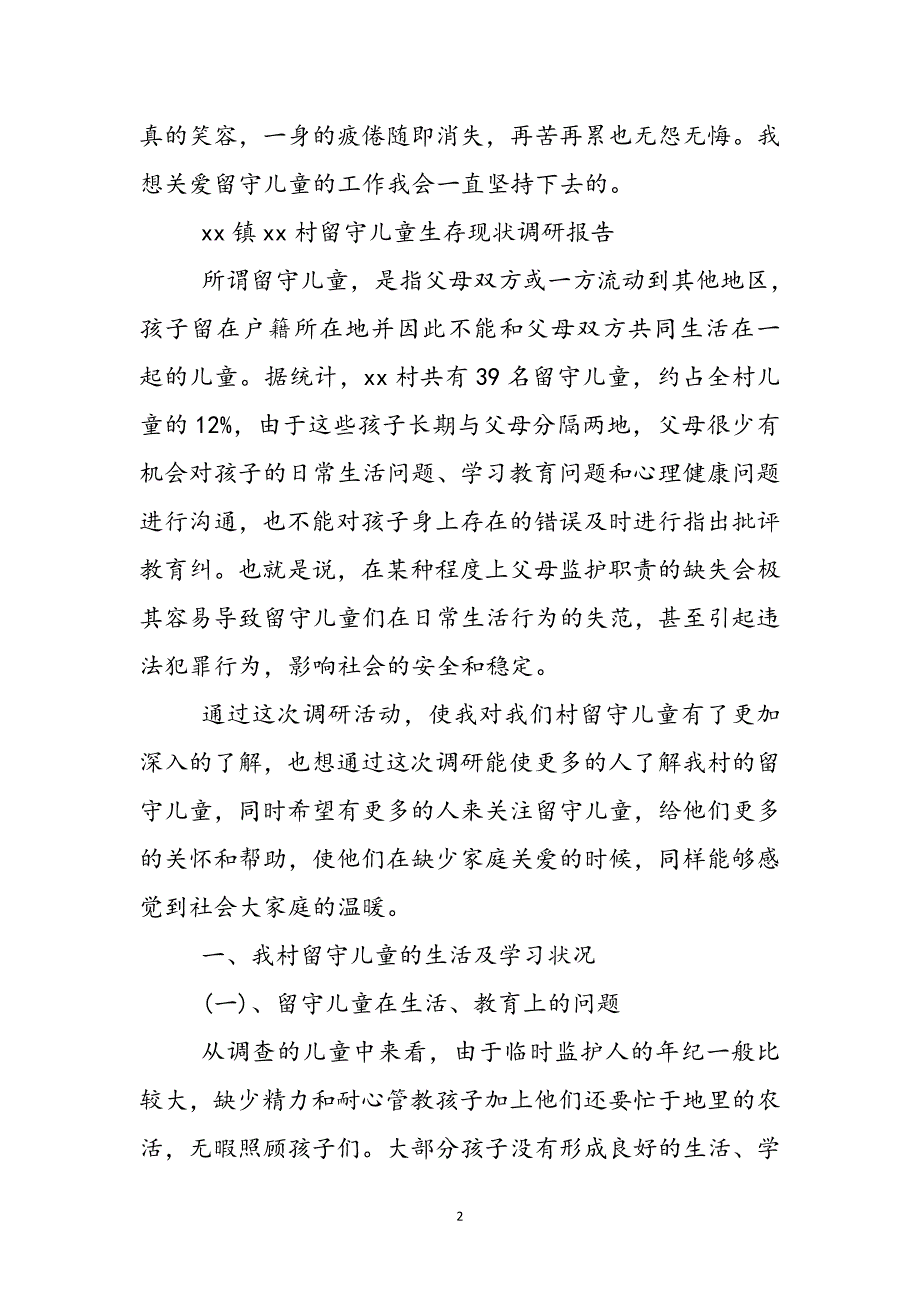 真的笑容，一身的疲倦随即消失，再苦再累也无怨无悔。我
想关爱留守儿童的工作我会一直坚持下去的。
xx 镇 xx 村留守儿童生存现状调研报告
所谓留守儿童，是指父母双方或一方流动到其他地区，
孩子留在户籍所在地并因此不能和父母双方共同生活在一
起的儿童。据统计，xx 村共有 39 名留守儿童，约占全村儿
童的 12%，由于这些孩子长期与父母分隔两地，父母很少有
机会对孩子的日常生活问题、学习教育问题和心理健康问题
进行沟通，也不能对孩子身上存在的错误及时进行指出批评
教育纠。也就是说，在某种程度上父母监护职责的缺失会极
其容易导致留守儿童们在日常生活行为的失范，甚至引起违
法犯罪行为，影响社会的安全和稳定。
通过这次调研活动，使我对我们村留守儿童有了更加
深入的了解，也想通过这次调研能使更多的人了解我村的留
守儿童，同时希望有更多的人来关注留守儿童，给他们更多
的关怀和帮助，使他们在缺少家庭关爱的时候，同样能够感
觉到社会大家庭的温暖。
一、我村留守儿童的生活及学习状况
(一)、留守儿童在生活、教育上的问题
从调查的儿童中来看，由于临时监护人的年纪一般比
较大，缺少精力和耐心管教孩子加上他们还要忙于地里的农
活，无暇照顾孩子们。大部分孩子没有形成良好的生活、学
2